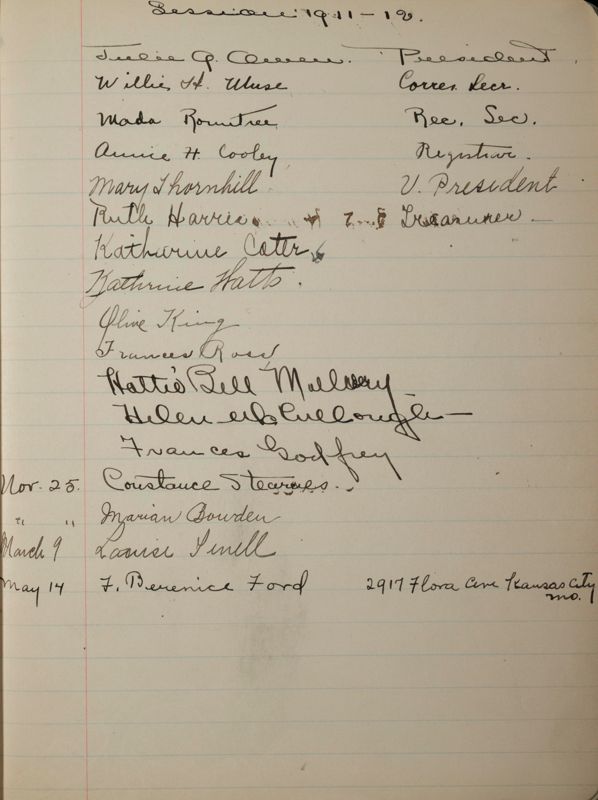 Session 1911-12.
Julie A. Owen. President.
Willie H. Muse Corres. Secr.
Mada Rountree Rec. Sec.
Annie H. Cooley Registrar.
Mary Thornhill V. President
Ruth Harris Treasurer
Katharine
Kathrine Watts.
Olive King
Frances Ross
Hattie Bell
Helen McCullough
Frances Godfrey
Nov. 25. Constance Stearnes.
" " Marian Bowden
March 9 Louise
May 14 F. Berenice Ford 2917 Flora Ave Kansas City
Mo.